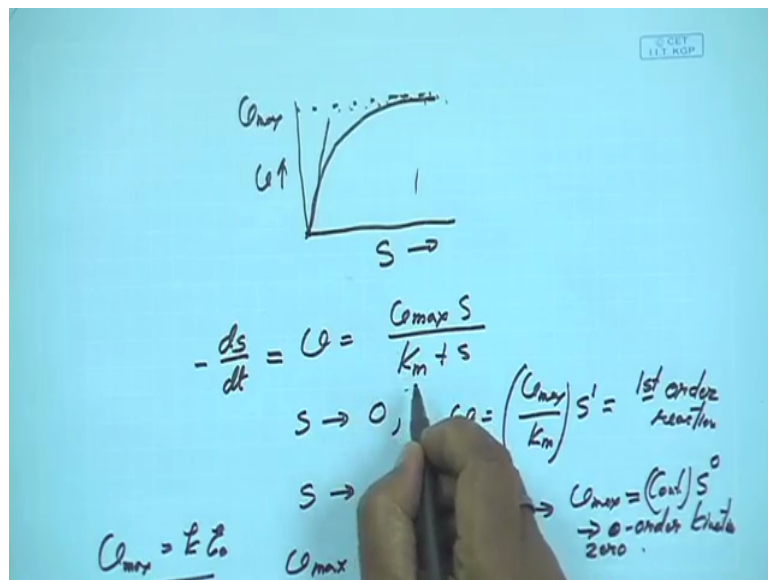 © CET
I.I.T. KGP
υmax
υ↑
S →
- ds/dt = υ = υmax S / Km + S
S → 0, υ = (υmax / Km) S¹ = 1st order
reaction
S → → υmax = (Const) S⁰
→ 0-order kinetics
zero.
υmax = k
υmax